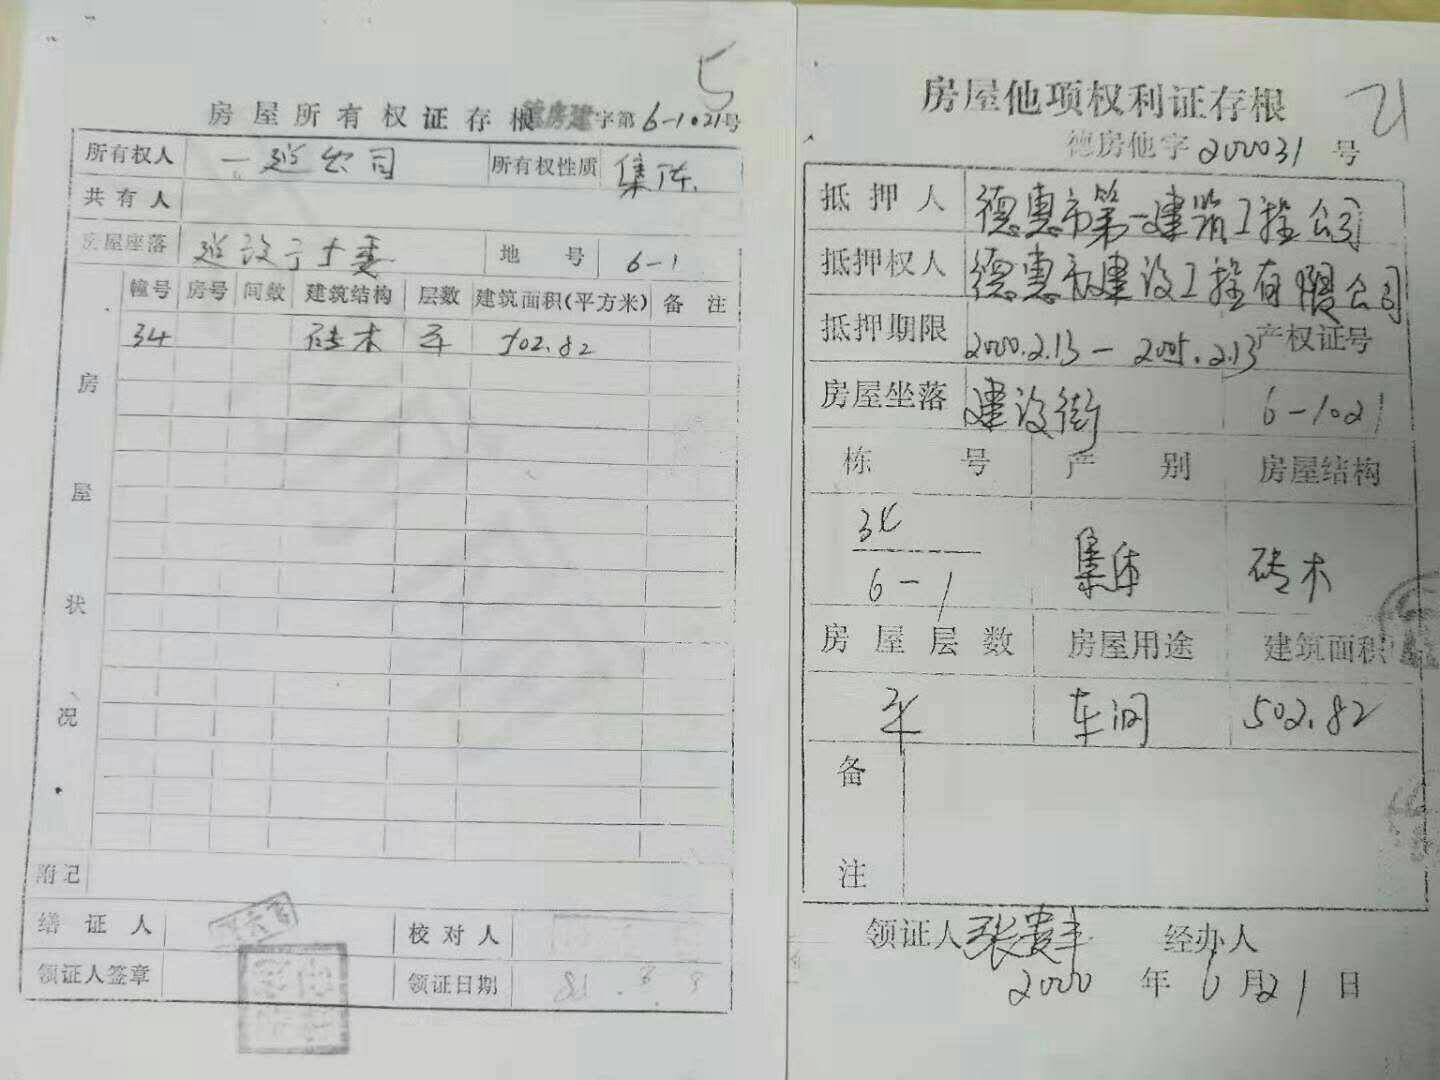 5
房屋所有权证存根 德房建字第6-1021号
所有权人 一建公司 所有权性质 集体
共有人
房屋座落 建设街十委 地号 6-1
房屋状况
幢号 房号 间数 建筑结构 层数 建筑面积(平方米) 备注
34 砖木 平 502.82
附记
缮证人 校对人
领证人签章 领证日期
房屋他项权利证存根
21
德房他字200031号
抵押人 德惠市第一建筑工程公司
抵押权人 德惠市建设工程有限公司
抵押期限 2000.2.13-2005.2.13 产权证号
房屋坐落 建设街 6-1021
栋号 产别 房屋结构
34
6-1 集体 砖木
房屋层数 房屋用途 建筑面积
平 车间 502.82
备注
领证人 张贵丰 经办人
2000年6月21日